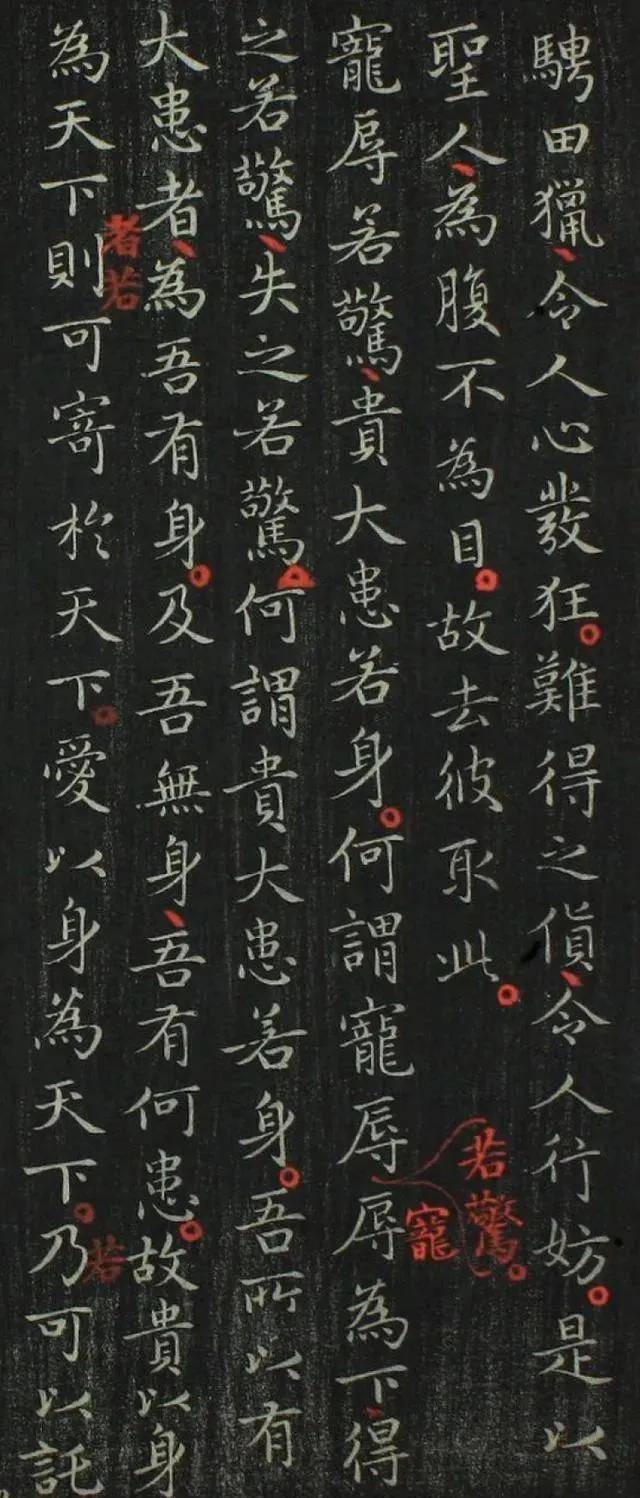 騁田獵、令人心發狂。難得之貨、令人行妨。是以
聖人、為腹不為目。故去彼取此。
寵辱若驚、貴大患若身。何謂寵辱辱為下、得
若驚。
寵
之若驚、失之若驚。何謂貴大患若身。吾所以有
大患者、為吾有身。及吾無身、吾有何患。故貴以身
者若
為天下則可寄於天下。愛以身為天下。乃可以託
若